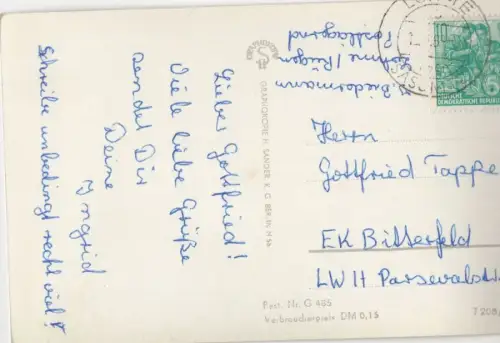 Lieber Gottfried!
Viele liebe Grüße
sendet Dir
Deine
Ingrid
Schreibe unbedingt recht viel!
Biedermann
Lohme/Rügen
Postlagernd
Herrn
Gottfried Tappe
EK Bitterfeld
LW II Parsevalstr
GRAPHOKOPIE H. SANDER K. G. BERLIN N 54
Best. Nr. G 485
Verbraucherpreis DM 0,15
7 208
DEUTSCHE
DEMOKRATISCHE REPUBLIK